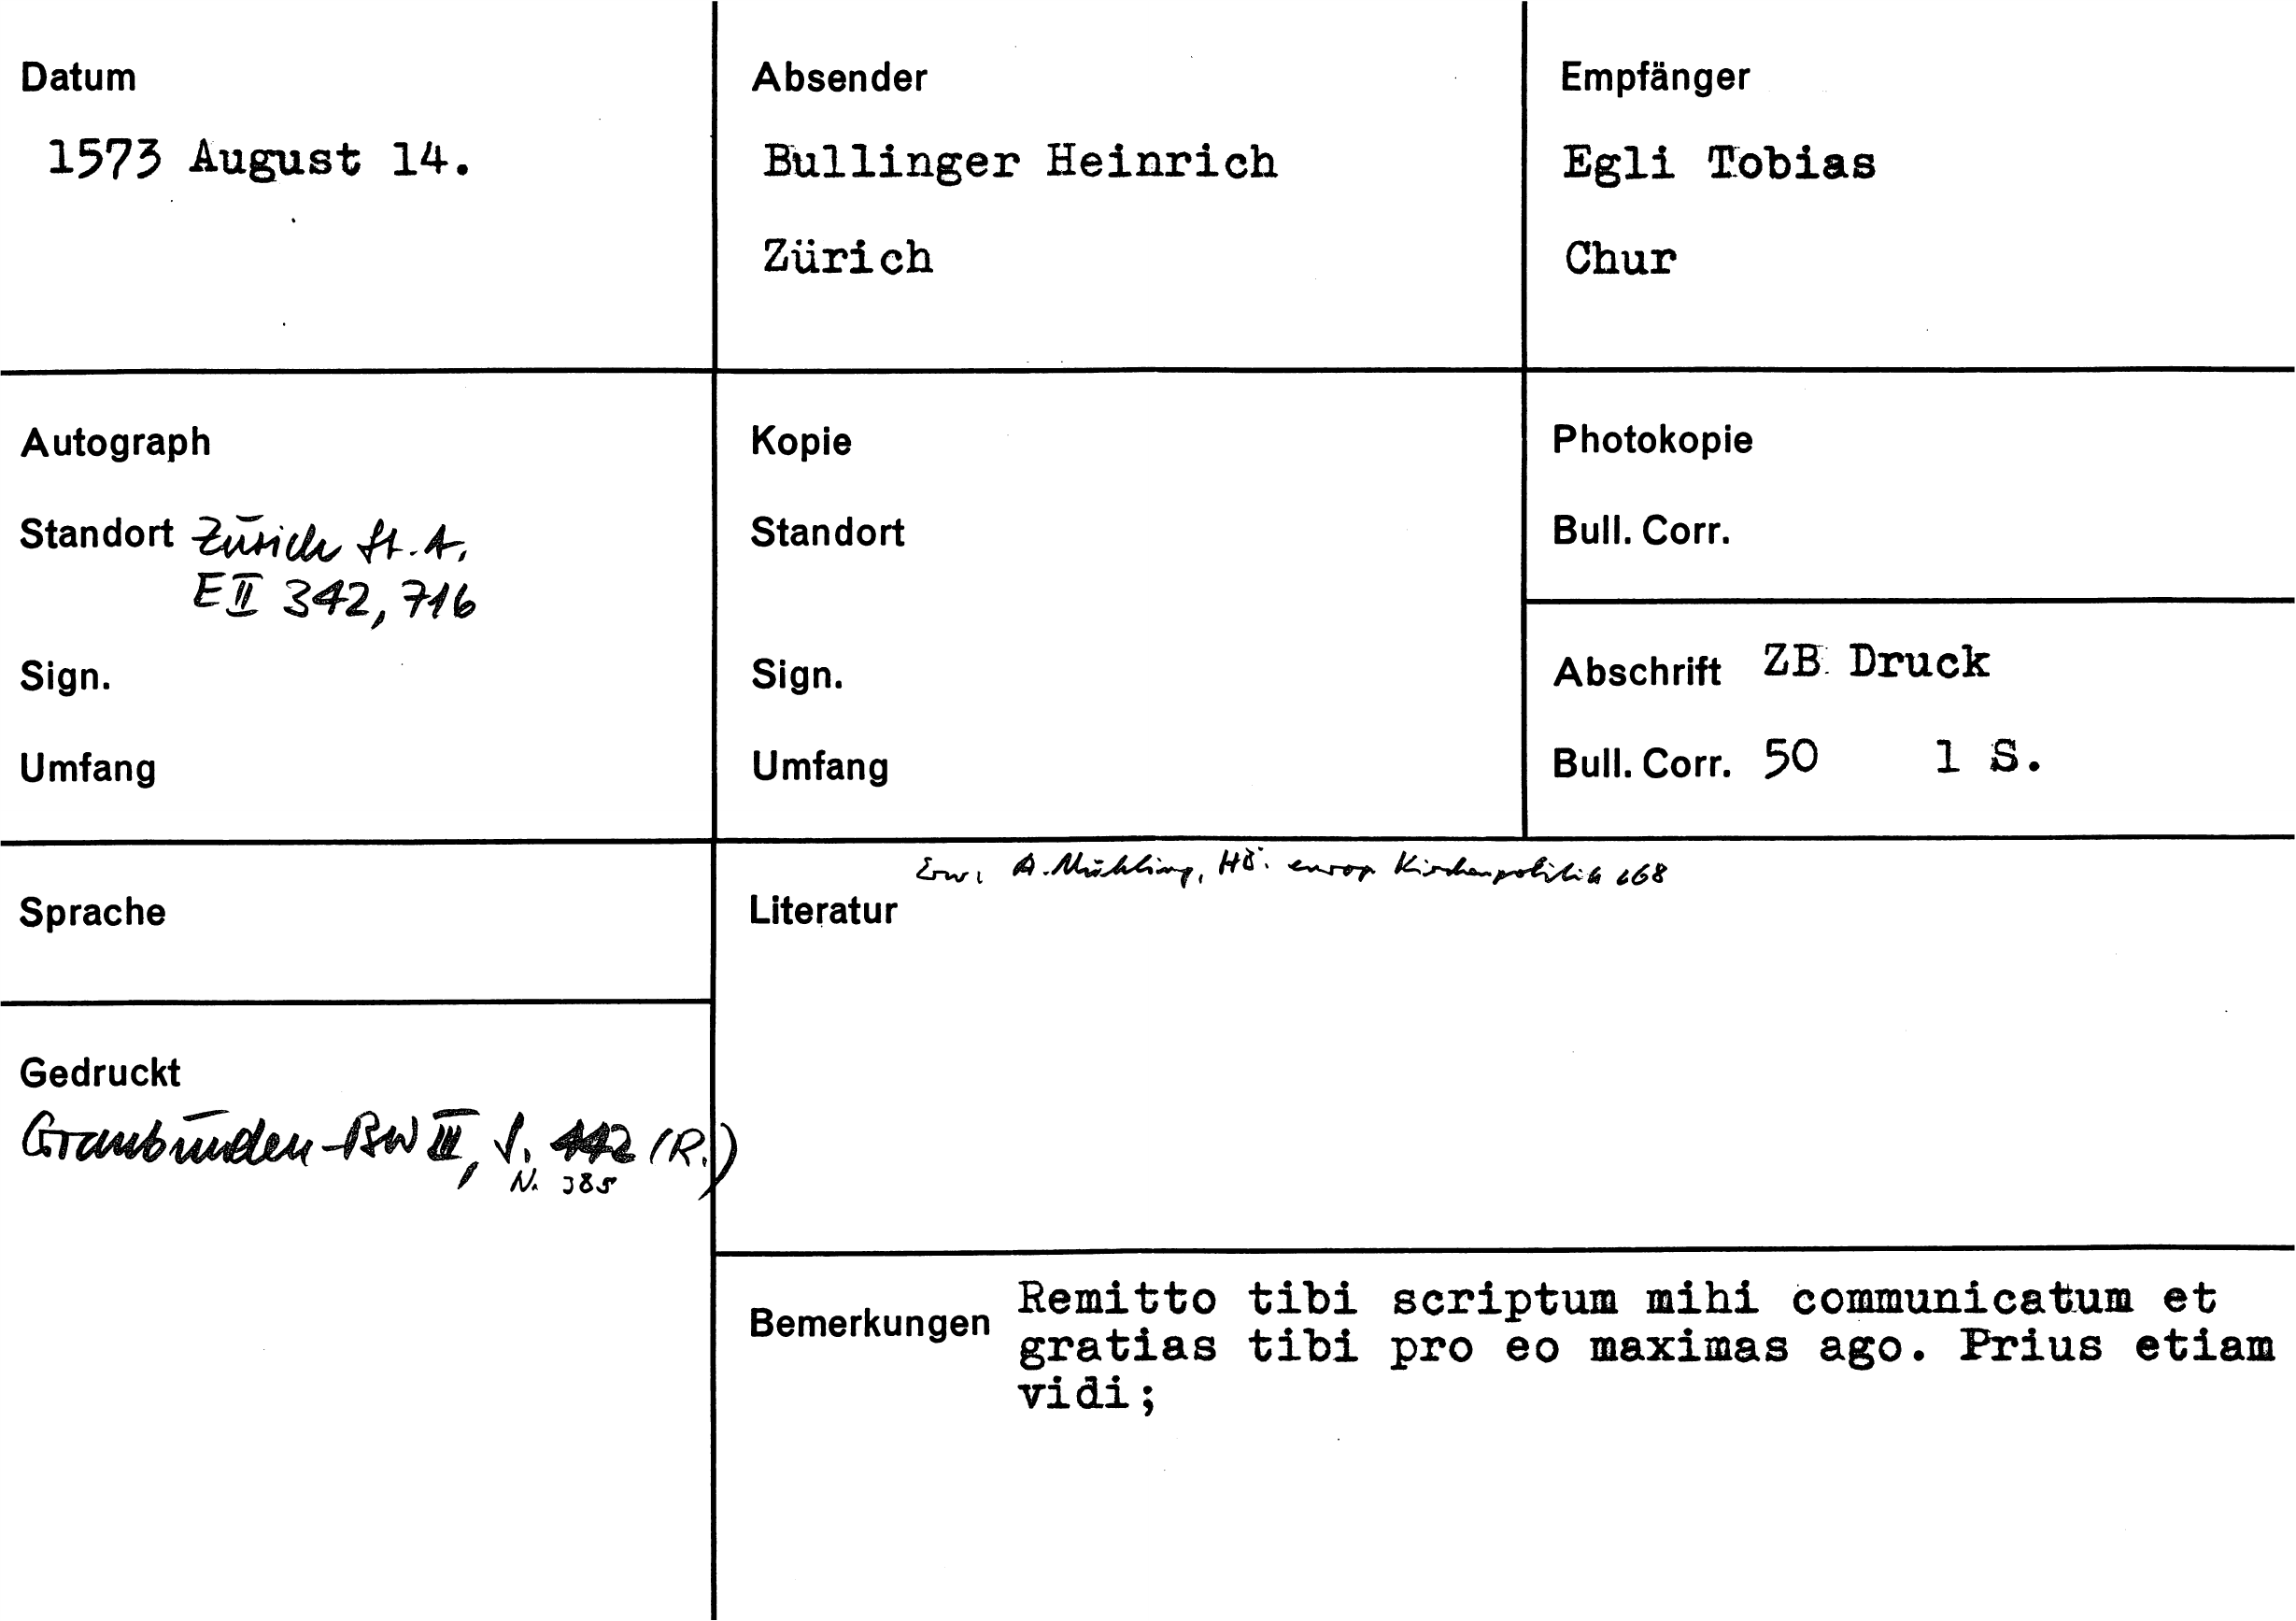 Datum
1573 August 14.
Absender
Bullinger Heinrich
Zürich
Empfänger
Egli Tobias
Chur
Autograph
Standort Zürich St. A.
E II 342, 716
Sign.
Umfang
Kopie
Standort
Sign.
Umfang
Photokopie
Bull. Corr.
Abschrift ZB Druck
Bull. Corr. 50 1 S.
Sprache
Gedruckt
Graubünden-BW III, S. 442 (R.)
N. 385
Erw. A. Mühling, HB. europ Kirchenpolitik 268
Literatur
Bemerkungen Remitto tibi scriptum mihi communicatum et
gratias tibi pro eo maximas ago. Prius etiam
vidi;